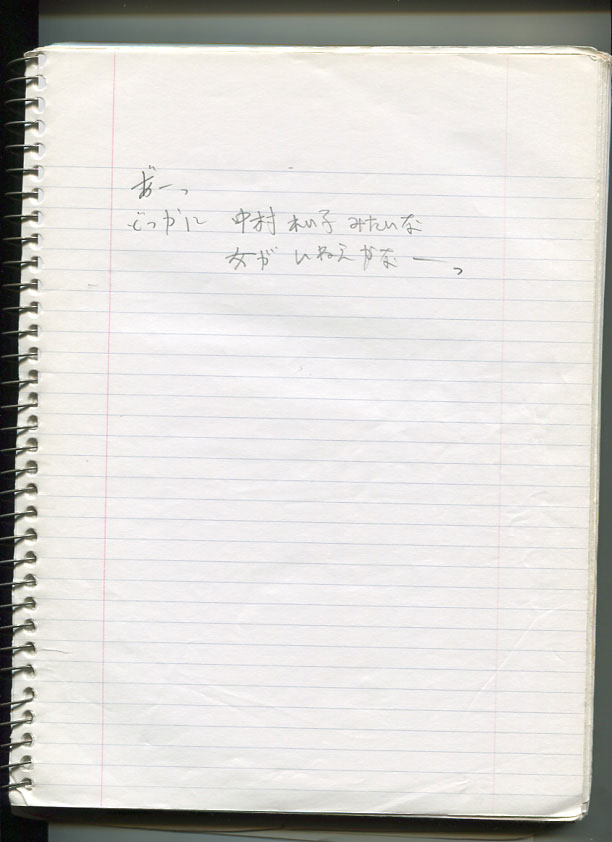 あ゛ーっ
どっかに 中村 れい子 みたいな
女が いねえかなーっ